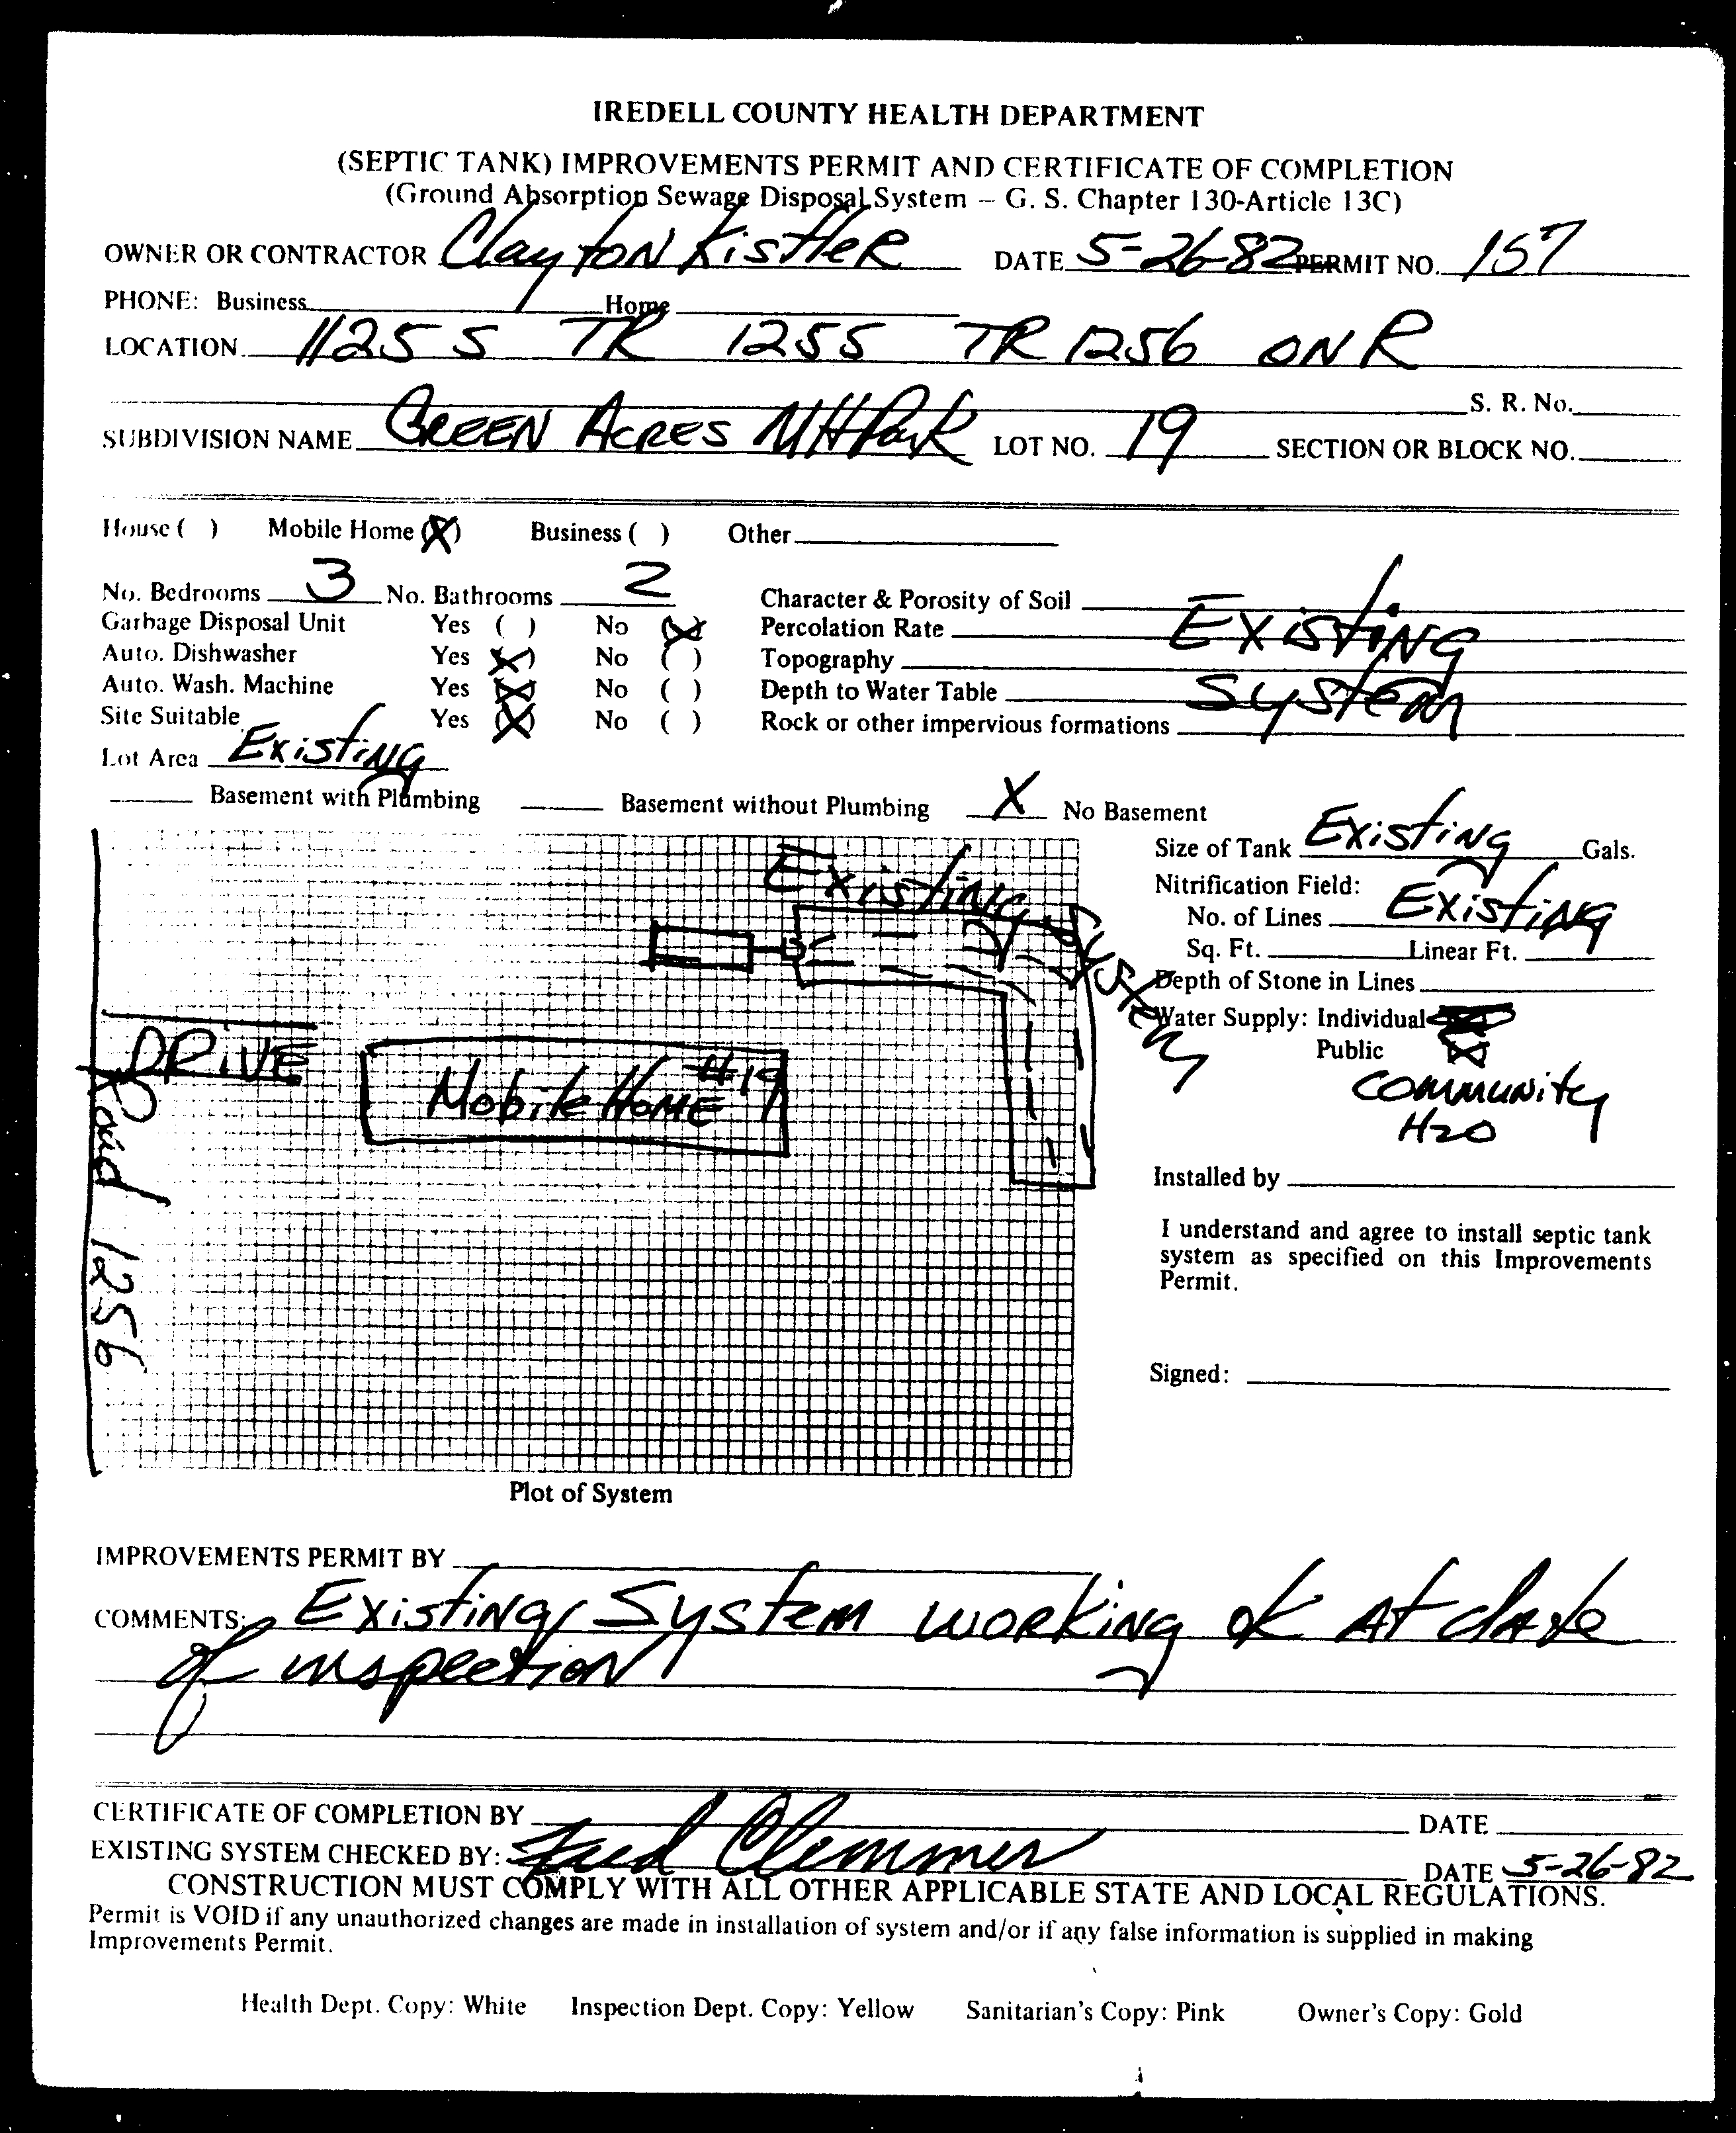 IREDELL COUNTY HEALTH DEPARTMENT
(SEPTIC TANK) IMPROVEMENTS PERMIT AND CERTIFICATE OF COMPLETION
(Ground Absorption Sewage Disposal System – G. S. Chapter 130-Article 13C)
OWNER OR CONTRACTOR Clayton Kistler DATE 5-26-82 PERMIT NO. 157
PHONE: Business Home
LOCATION 1125 S TR 1255 TR 1256 ON R
S. R. No.
SUBDIVISION NAME GREEN ACRES MH Park LOT NO. 19 SECTION OR BLOCK NO.
House ( ) Mobile Home (X) Business ( ) Other
No. Bedrooms 3 No. Bathrooms 2 Character & Porosity of Soil
Garbage Disposal Unit Yes ( ) No (X) Percolation Rate Existing
Auto. Dishwasher Yes (X) No ( ) Topography
Auto. Wash. Machine Yes (X) No ( ) Depth to Water Table System
Site Suitable Yes (X) No ( ) Rock or other impervious formations
Lot Area Existing
Basement with Plumbing Basement without Plumbing X No Basement
Size of Tank Existing Gals.
Nitrification Field:
No. of Lines Existing
Sq. Ft. Linear Ft.
Depth of Stone in Lines
Water Supply: Individual
Public X
Community
H2O
Existing System
DRIVE
Mobile Home #19
Road 1256
Installed by
I understand and agree to install septic tank
system as specified on this Improvements
Permit.
Signed:
Plot of System
IMPROVEMENTS PERMIT BY
COMMENTS: Existing System working ok At date
of inspection
CERTIFICATE OF COMPLETION BY DATE
EXISTING SYSTEM CHECKED BY: Fred Clemmer DATE 5-26-82
CONSTRUCTION MUST COMPLY WITH ALL OTHER APPLICABLE STATE AND LOCAL REGULATIONS.
Permit is VOID if any unauthorized changes are made in installation of system and/or if any false information is supplied in making
Improvements Permit.
Health Dept. Copy: White Inspection Dept. Copy: Yellow Sanitarian's Copy: Pink Owner's Copy: Gold